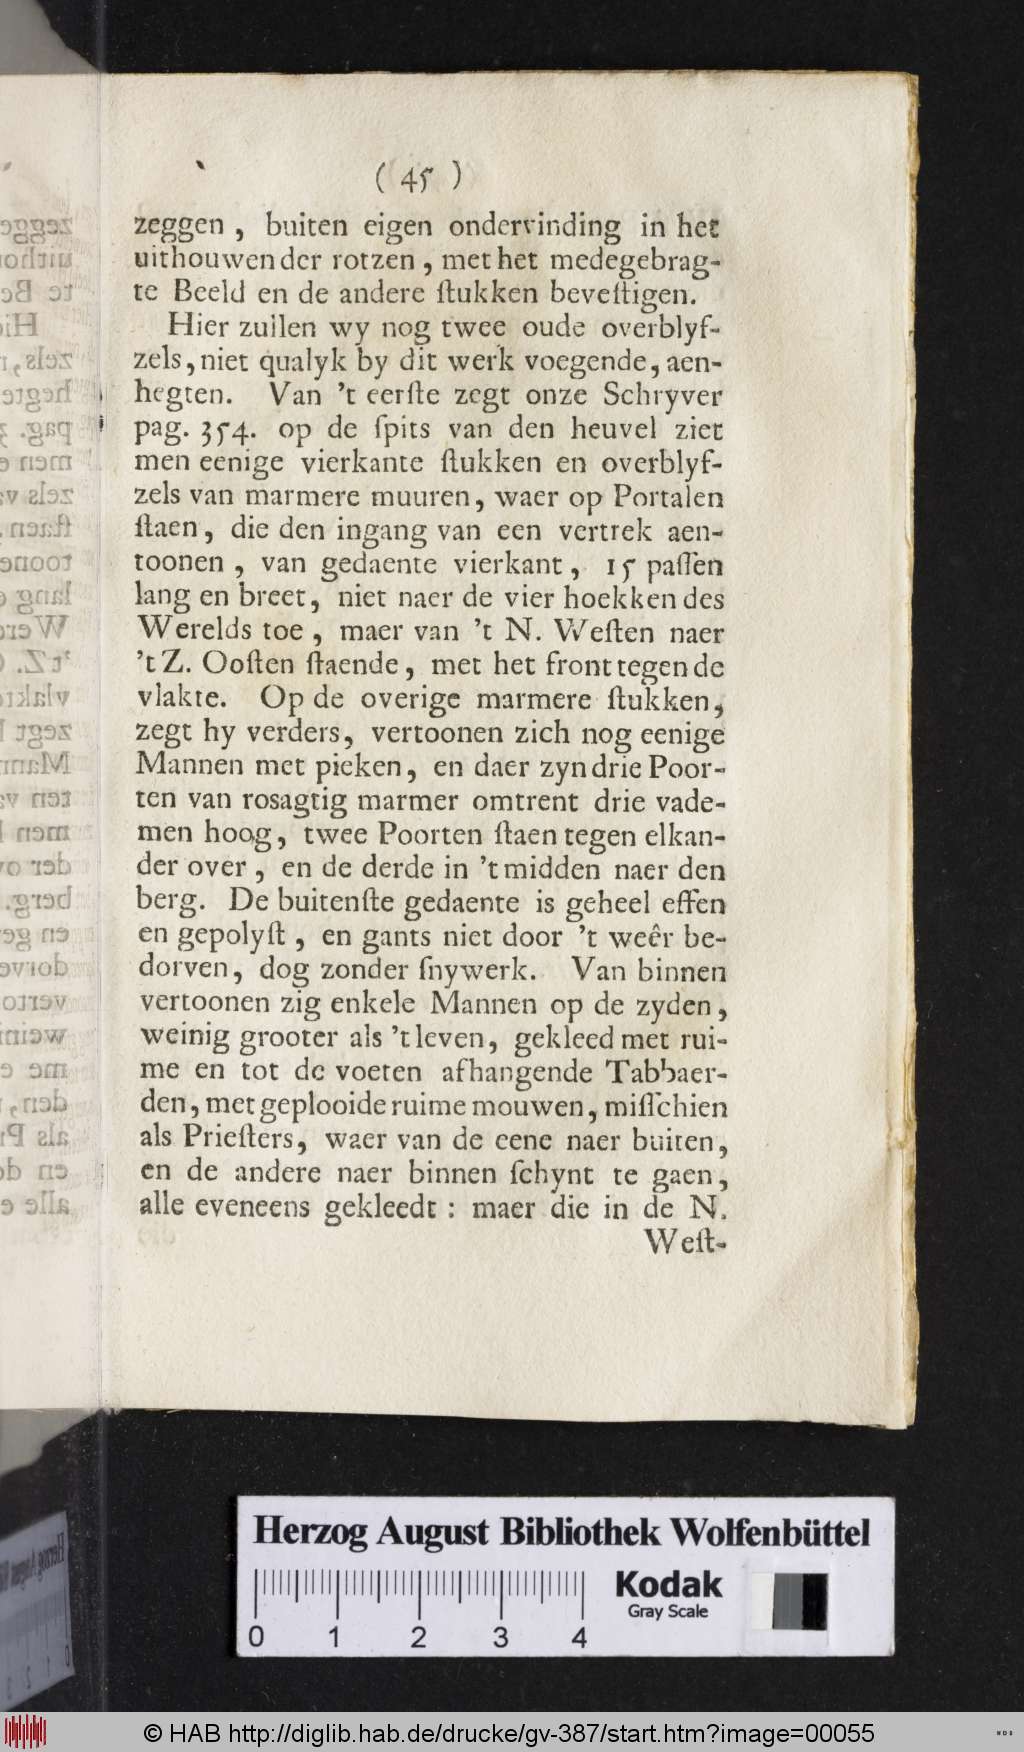 ( 45 )
zeggen , buiten eigen ondervinding in het
uithouwen der rotzen , met het medegebrag-
te Beeld en de andere ſtukken beveſtigen.
Hier zullen wy nog twee oude overblyf-
zels, niet qualyk by dit werk voegende, aen-
hegten. Van 't eerſte zegt onze Schryver
pag. 354. op de ſpits van den heuvel ziet
men eenige vierkante ſtukken en overblyf-
zels van marmere muuren, waer op Portalen
ſtaen, die den ingang van een vertrek aen-
toonen , van gedaente vierkant, 15 paſſen
lang en breet, niet naer de vier hoekken des
Werelds toe , maer van 't N. Weſten naer
't Z. Ooſten ſtaende, met het front tegen de
vlakte. Op de overige marmere ſtukken,
zegt hy verders, vertoonen zich nog eenige
Mannen met pieken, en daer zyn drie Poor-
ten van rosagtig marmer omtrent drie vade-
men hoog, twee Poorten ſtaen tegen elkan-
der over , en de derde in 't midden naer den
berg. De buitenſte gedaente is geheel effen
en gepolyſt , en gants niet door 't weêr be-
dorven, dog zonder ſnywerk. Van binnen
vertoonen zig enkele Mannen op de zyden,
weinig grooter als 't leven, gekleed met rui-
me en tot de voeten afhangende Tabbaer-
den, met geplooide ruime mouwen, miſſchien
als Prieſters, waer van de eene naer buiten,
en de andere naer binnen ſchynt te gaen,
alle eveneens gekleedt : maer die in de N.
Weſt-
Herzog August Bibliothek Wolfenbüttel
Kodak
Gray Scale
0 1 2 3 4
© HAB http://diglib.hab.de/drucke/gv-387/start.htm?image=00055